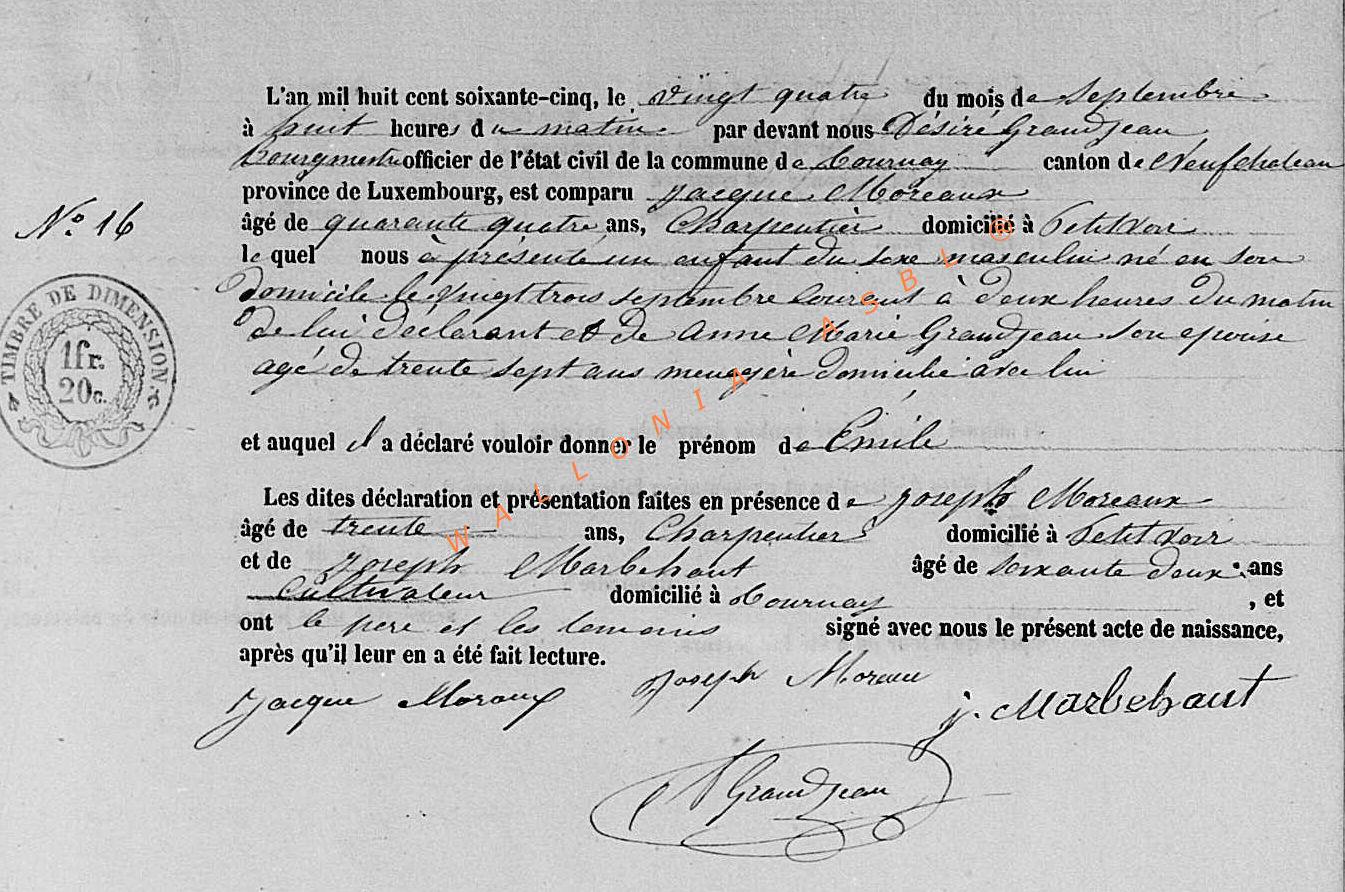 L'an mil huit cent soixante-cinq, le vingt quatre du mois de Septembre
à huit heures du matin par devant nous Désiré Grandjean
bourgmestre officier de l'état civil de la commune de Tournay canton de Neufchateau
province de Luxembourg, est comparu Jacque Moreaux
N° 16
âgé de quarante quatre ans, Charpentier domicilié à Petitvoir
lequel nous à présenté un enfant du sexe masculin né en son
domicile le vingt trois septembre courant à deux heures du matin
de lui déclarant et de Anne Marie Grandjean son epouse
agé de trente sept ans menagère domicilié avec lui
TIMBRE DE DIMENSION.
1 fr.
20 c.
et auquel il a déclaré vouloir donner le prénom de Emile
Les dites déclaration et présentation faites en présence de Joseph Moreaux
âgé de trente ans, Charpentier domicilié à Petitvoir
et de Joseph Marbehant âgé de soixante deux ans
Cultivateur domicilié à Tournay, et
ont le pere et les temoins signé avec nous le présent acte de naissance,
après qu'il leur en a été fait lecture.
Jacque Moraux Joseph Moreau
j. Marbehant
Grandjean
WALLONIA ASBL ®